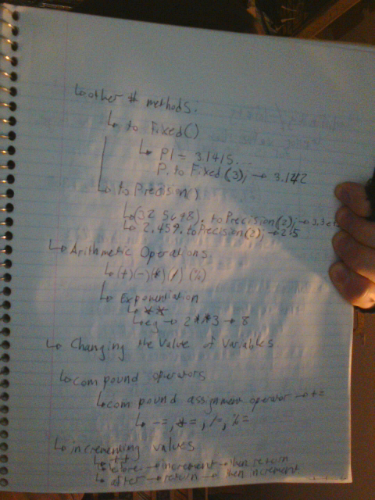 ↳other # methods:
↳ to Fixed()
↳ PI = 3.1415...
P. to Fixed (3); → 3.142
↳ to Precision()
↳ toPrecision(2); →
↳ 2.459. toPrecision(2); → 2.5
↳ Arithmetic Operations
↳ (+)(-)(*)(/)(%)
↳ Exponentiation
↳ **
↳ eg → 2**3 → 8
↳ Changing the value of variables
↳ compound operators
↳ compound assignment operator → +=
↳ -=, *=, /=, %=
↳ incrementing values
↳ before → increment → then return
↳ after → return → then increment